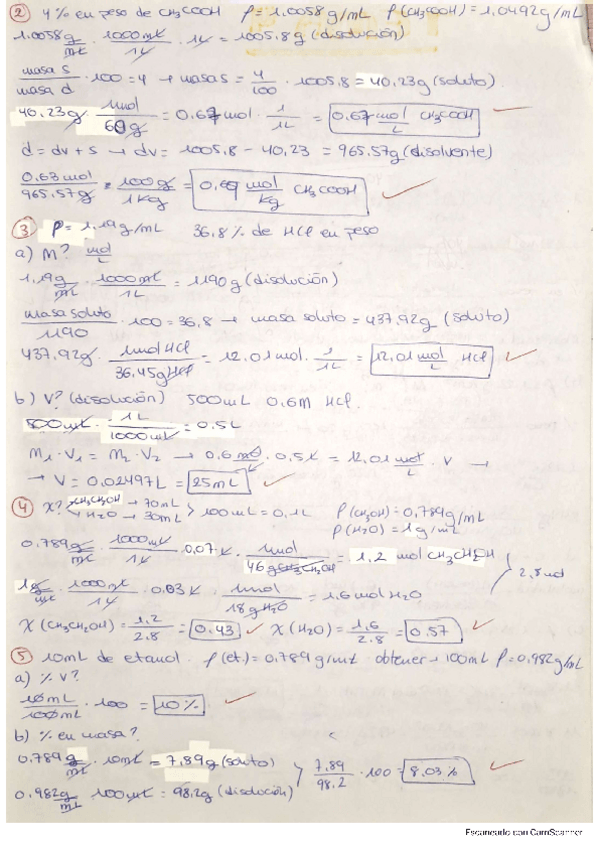 ② 4% en peso de CH₃COOH ρ = 1.0058 g/mL ρ(CH₃COOH) = 1.0492 g/mL
1.0058 g/mL · 1000 mL/1L · 1L = 1005.8 g (disolución)
masa s/masa d · 100 = 4 → masa s = 4/100 · 1005.8 = 40.23 g (soluto)
40.23 g · 1mol/60g = 0.67 mol · 1/1L = 0.67 mol/L CH₃COOH
d = dv + s → dv = 1005.8 - 40.23 = 965.57 g (disolvente)
0.63 mol/965.57 g · 100 g/1 Kg = 0.69 mol/Kg CH₃COOH
③ ρ = 1.19 g/mL 36.8% de HCl en peso
a) M? mol/L
1.19 g/mL · 1000 mL/1L = 1190 g (disolución)
masa soluto/1190 · 100 = 36.8 → masa soluto = 437.92 g (soluto)
437.92 g · 1mol HCl/36.45 g HCl = 12.01 mol · 1/1L = 12.01 mol/L HCl
b) V? (disolución) 500 mL 0.6M HCl.
500 mL · 1L/1000 mL = 0.5 L
M₁ · V₁ = M₂ · V₂ → 0.6 mol/L · 0.5 L = 12.01 mol/L · V →
→ V = 0.02497 L = 25 mL
④ X? CH₃CH₂OH → 70 mL H₂O → 30 mL > 100 mL = 0.1 L ρ(CH₃OH) = 0.789 g/mL
ρ(H₂O) = 1 g/mL
0.789 g/mL · 1000 mL/1L · 0.07 L · 1mol/46 g CH₃CH₂OH = 1.2 mol CH₃CH₂OH
1 g/mL · 1000 mL/1L · 0.03 L · 1mol/18 g H₂O = 1.6 mol H₂O 2,8 mol
X (CH₃CH₂OH) = 1.2/2.8 = 0.43 X (H₂O) = 1.6/2.8 = 0.57
⑤ 10 mL de etanol. ρ(et.) = 0.789 g/mL obtener → 100 mL ρ = 0.982 g/mL
a) % V?
10 mL/100 mL · 100 = 10%
b) % en masa?
0.789 g/mL · 10 mL = 7.89 g (soluto) 7.89/98.2 · 100 = 8.03%
0.982 g/mL 100 mL = 98.2 g (disolución)
Escaneado con CamScanner